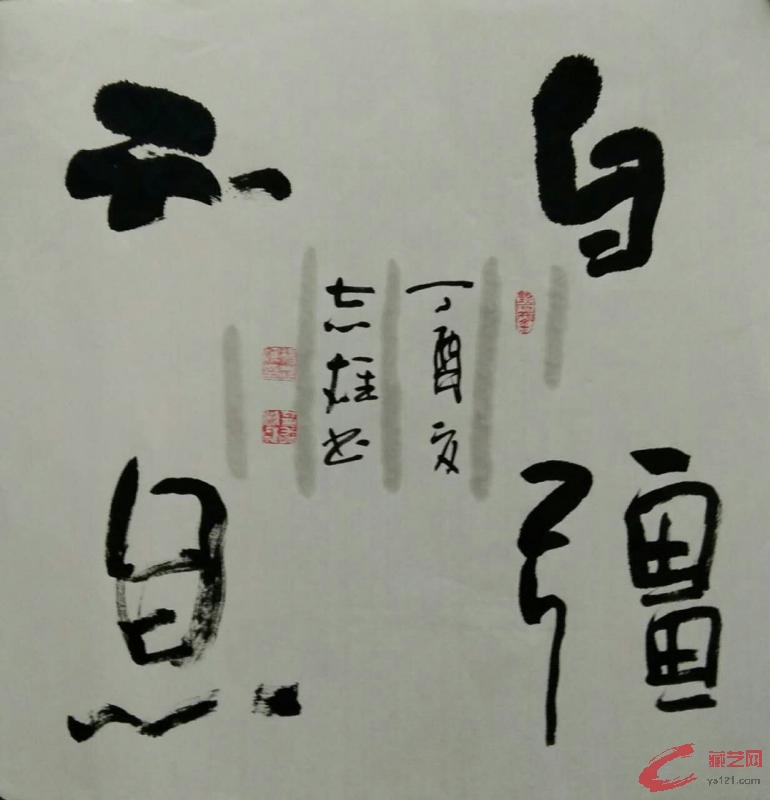 自彊
不息
丁酉夏
志雄书
藏艺网
ys121.com